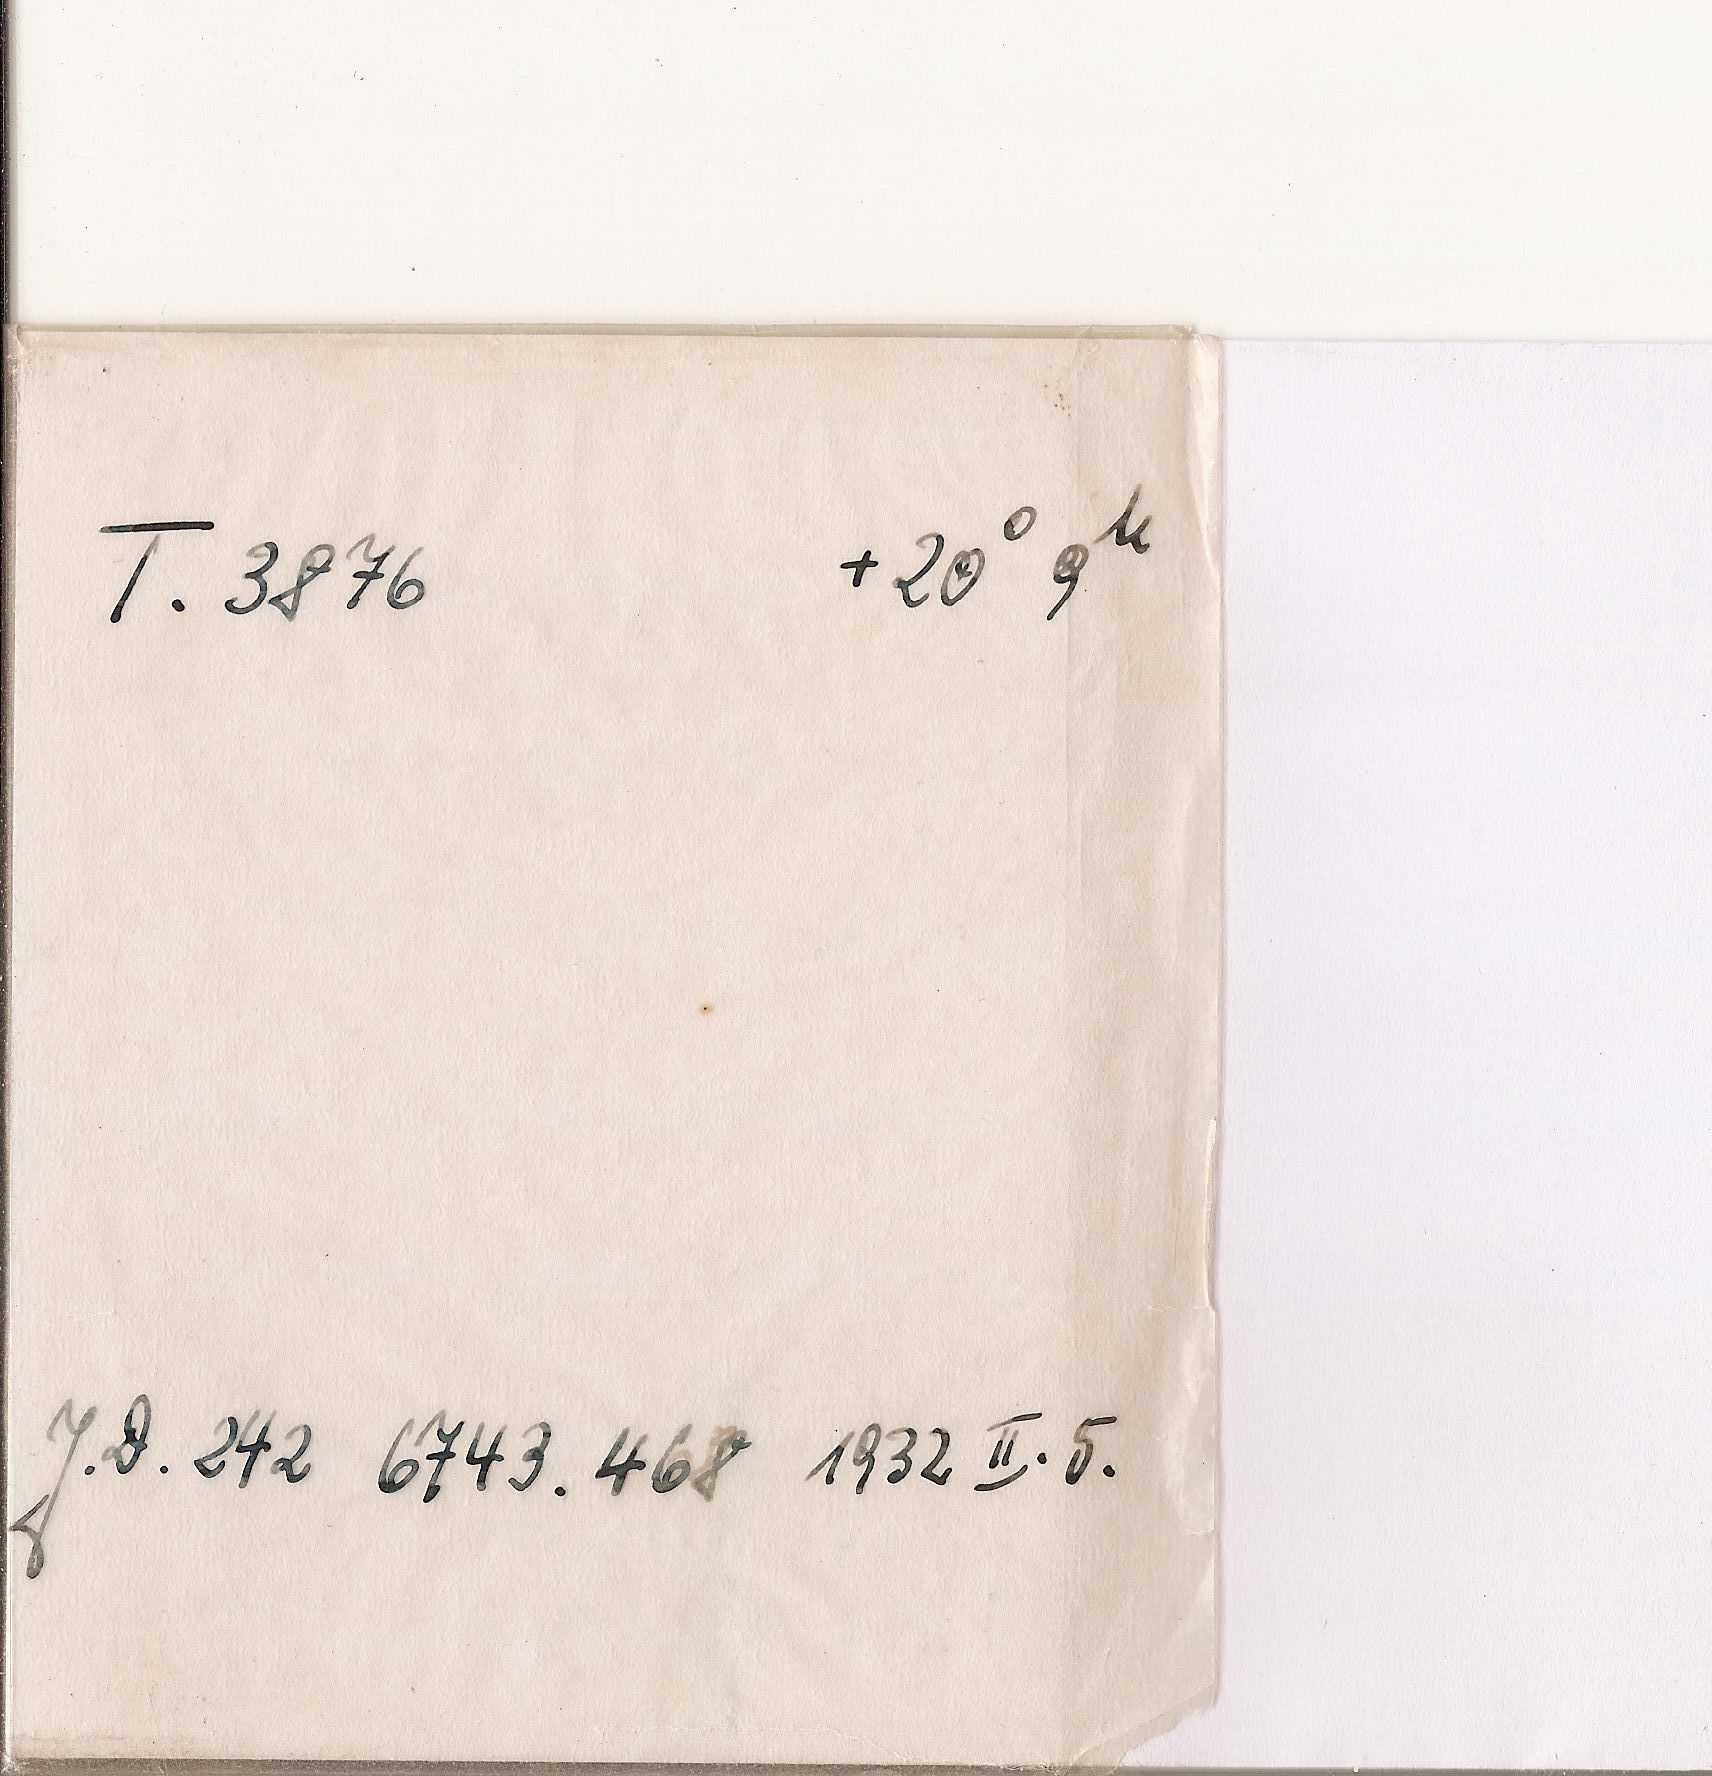 T. 3876 +20° 9ʰ
J.D. 242 6743.468 1932 II. 5.